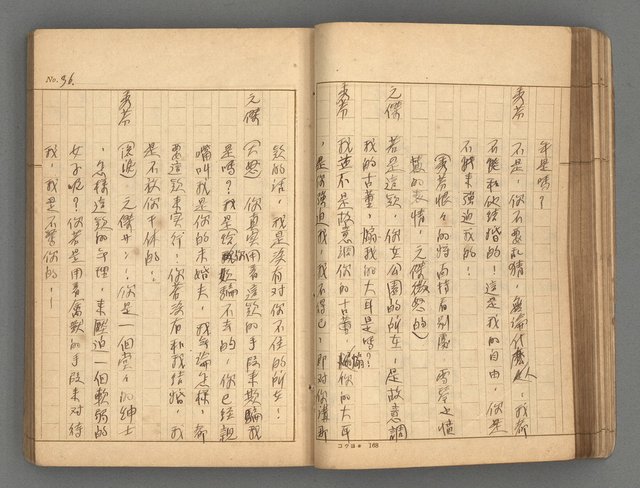 年是嗎？
秀英 不是，你不要亂猜，無論什麼人，我都
不能和伙結婚的！這是我的自由，你是
不能來強迫我的！
(秀英恨々的將面持有別處 憤
慨的表情，元傑微怒的)
元傑 若是這款，你在公園的所在，是故意調
我的古董，騙我的大耳是嗎？
秀英 我並不是故意調你的古董，騙你的大耳
，是你強迫我，我不得已，即對你講那
コクヨ 168
No. 36.
款的話，我是沒有对你不住的所在！
元傑 (大怒) 你真实用着這款的手段來欺騙我
是嗎？我是給你欺騙不去的，你已經親
嘴叫我是你的未婚夫，我無論怎樣，都
要這款來实行！你若沒有和我結婚，我
是不放你干休的！
秀英 元傑廾！你是一個堂々的紳士
，怎樣這款的無理，來壓迫一個軟弱的
女子呢？你若是用着禽獸的手段來对待
我，我是不驚你的！